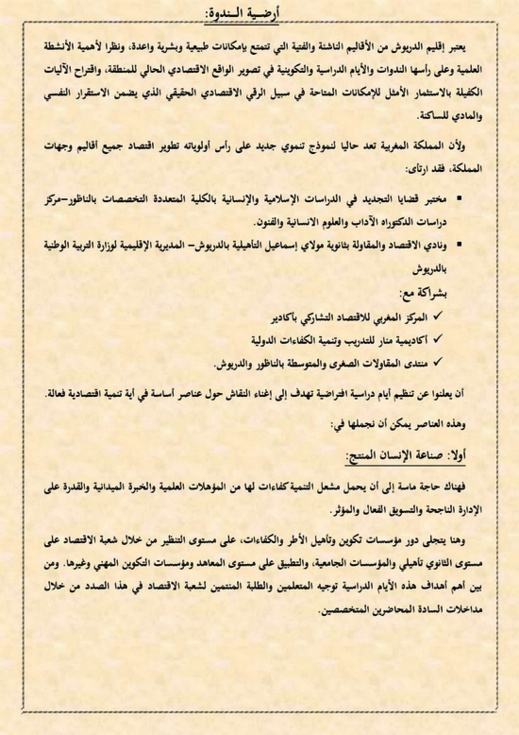 أرضية الندوة:
يعتبر إقليم الدريوش من الأقاليم الناشئة والفتية التي تتمتع بإمكانات طبيعية وبشرية واعدة، ونظرا لأهمية الأنشطة
العلمية وعلى رأسها الندوات والأيام الدراسية والتكوينية في تصوير الواقع الاقتصادي الحالي للمنطقة، واقتراح الآليات
الكفيلة بالاستثمار الأمثل للإمكانات المتاحة في سبيل الرقي الاقتصادي الحقيقي الذي يضمن الاستقرار النفسي
والمادي للساكنة.
ولأن المملكة المغربية تعد حاليا لنموذج تنموي جديد على رأس أولوياته تطوير اقتصاد جميع أقاليم وجهات
المملكة، فقد ارتأى:
▪ مختبر قضايا التجديد في الدراسات الإسلامية والإنسانية بالكلية المتعددة التخصصات بالناظور–مركز
دراسات الدكتوراه الآداب والعلوم الانسانية والفنون.
▪ ونادي الاقتصاد والمقاولة بثانوية مولاي إسماعيل التأهيلية بالدريوش– المديرية الإقليمية لوزارة التربية الوطنية
بالدريوش
بشراكة مع:
✓ المركز المغربي للاقتصاد التشاركي بأكادير
✓ أكاديمية منار للتدريب وتنمية الكفاءات الدولية
✓ منتدى المقاولات الصغرى والمتوسطة بالناظور والدريوش.
أن يعلنوا عن تنظيم أيام دراسية افتراضية تهدف إلى إغناء النقاش حول عناصر أساسة في أية تنمية اقتصادية فعالة.
وهذه العناصر يمكن أن نجملها في:
أولا: صناعة الإنسان المنتج:
فهناك حاجة ماسة إلى أن يحمل مشعل التنمية كفاءات لها من المؤهلات العلمية والخبرة الميدانية والقدرة على
الإدارة الناجحة والتسويق الفعال والمؤثر.
وهنا يتجلى دور مؤسسات تكوين وتأهيل الأطر والكفاءات، على مستوى التنظير من خلال شعبة الاقتصاد على
مستوى الثانوي تأهيلي والمؤسسات الجامعية، والتطبيق على مستوى المعاهد ومؤسسات التكوين المهني وغيرها. ومن
بين أهم أهداف هذه الأيام الدراسية توجيه المتعلمين والطلبة المنتمين لشعبة الاقتصاد في هذا الصدد من خلال
مداخلات السادة المحاضرين المتخصصين.